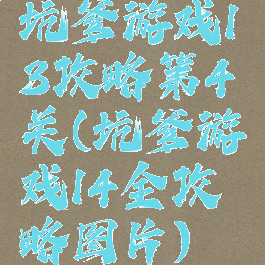 坑爹游戏1
3攻略第4
关(坑爹游
戏14全攻
略图片)